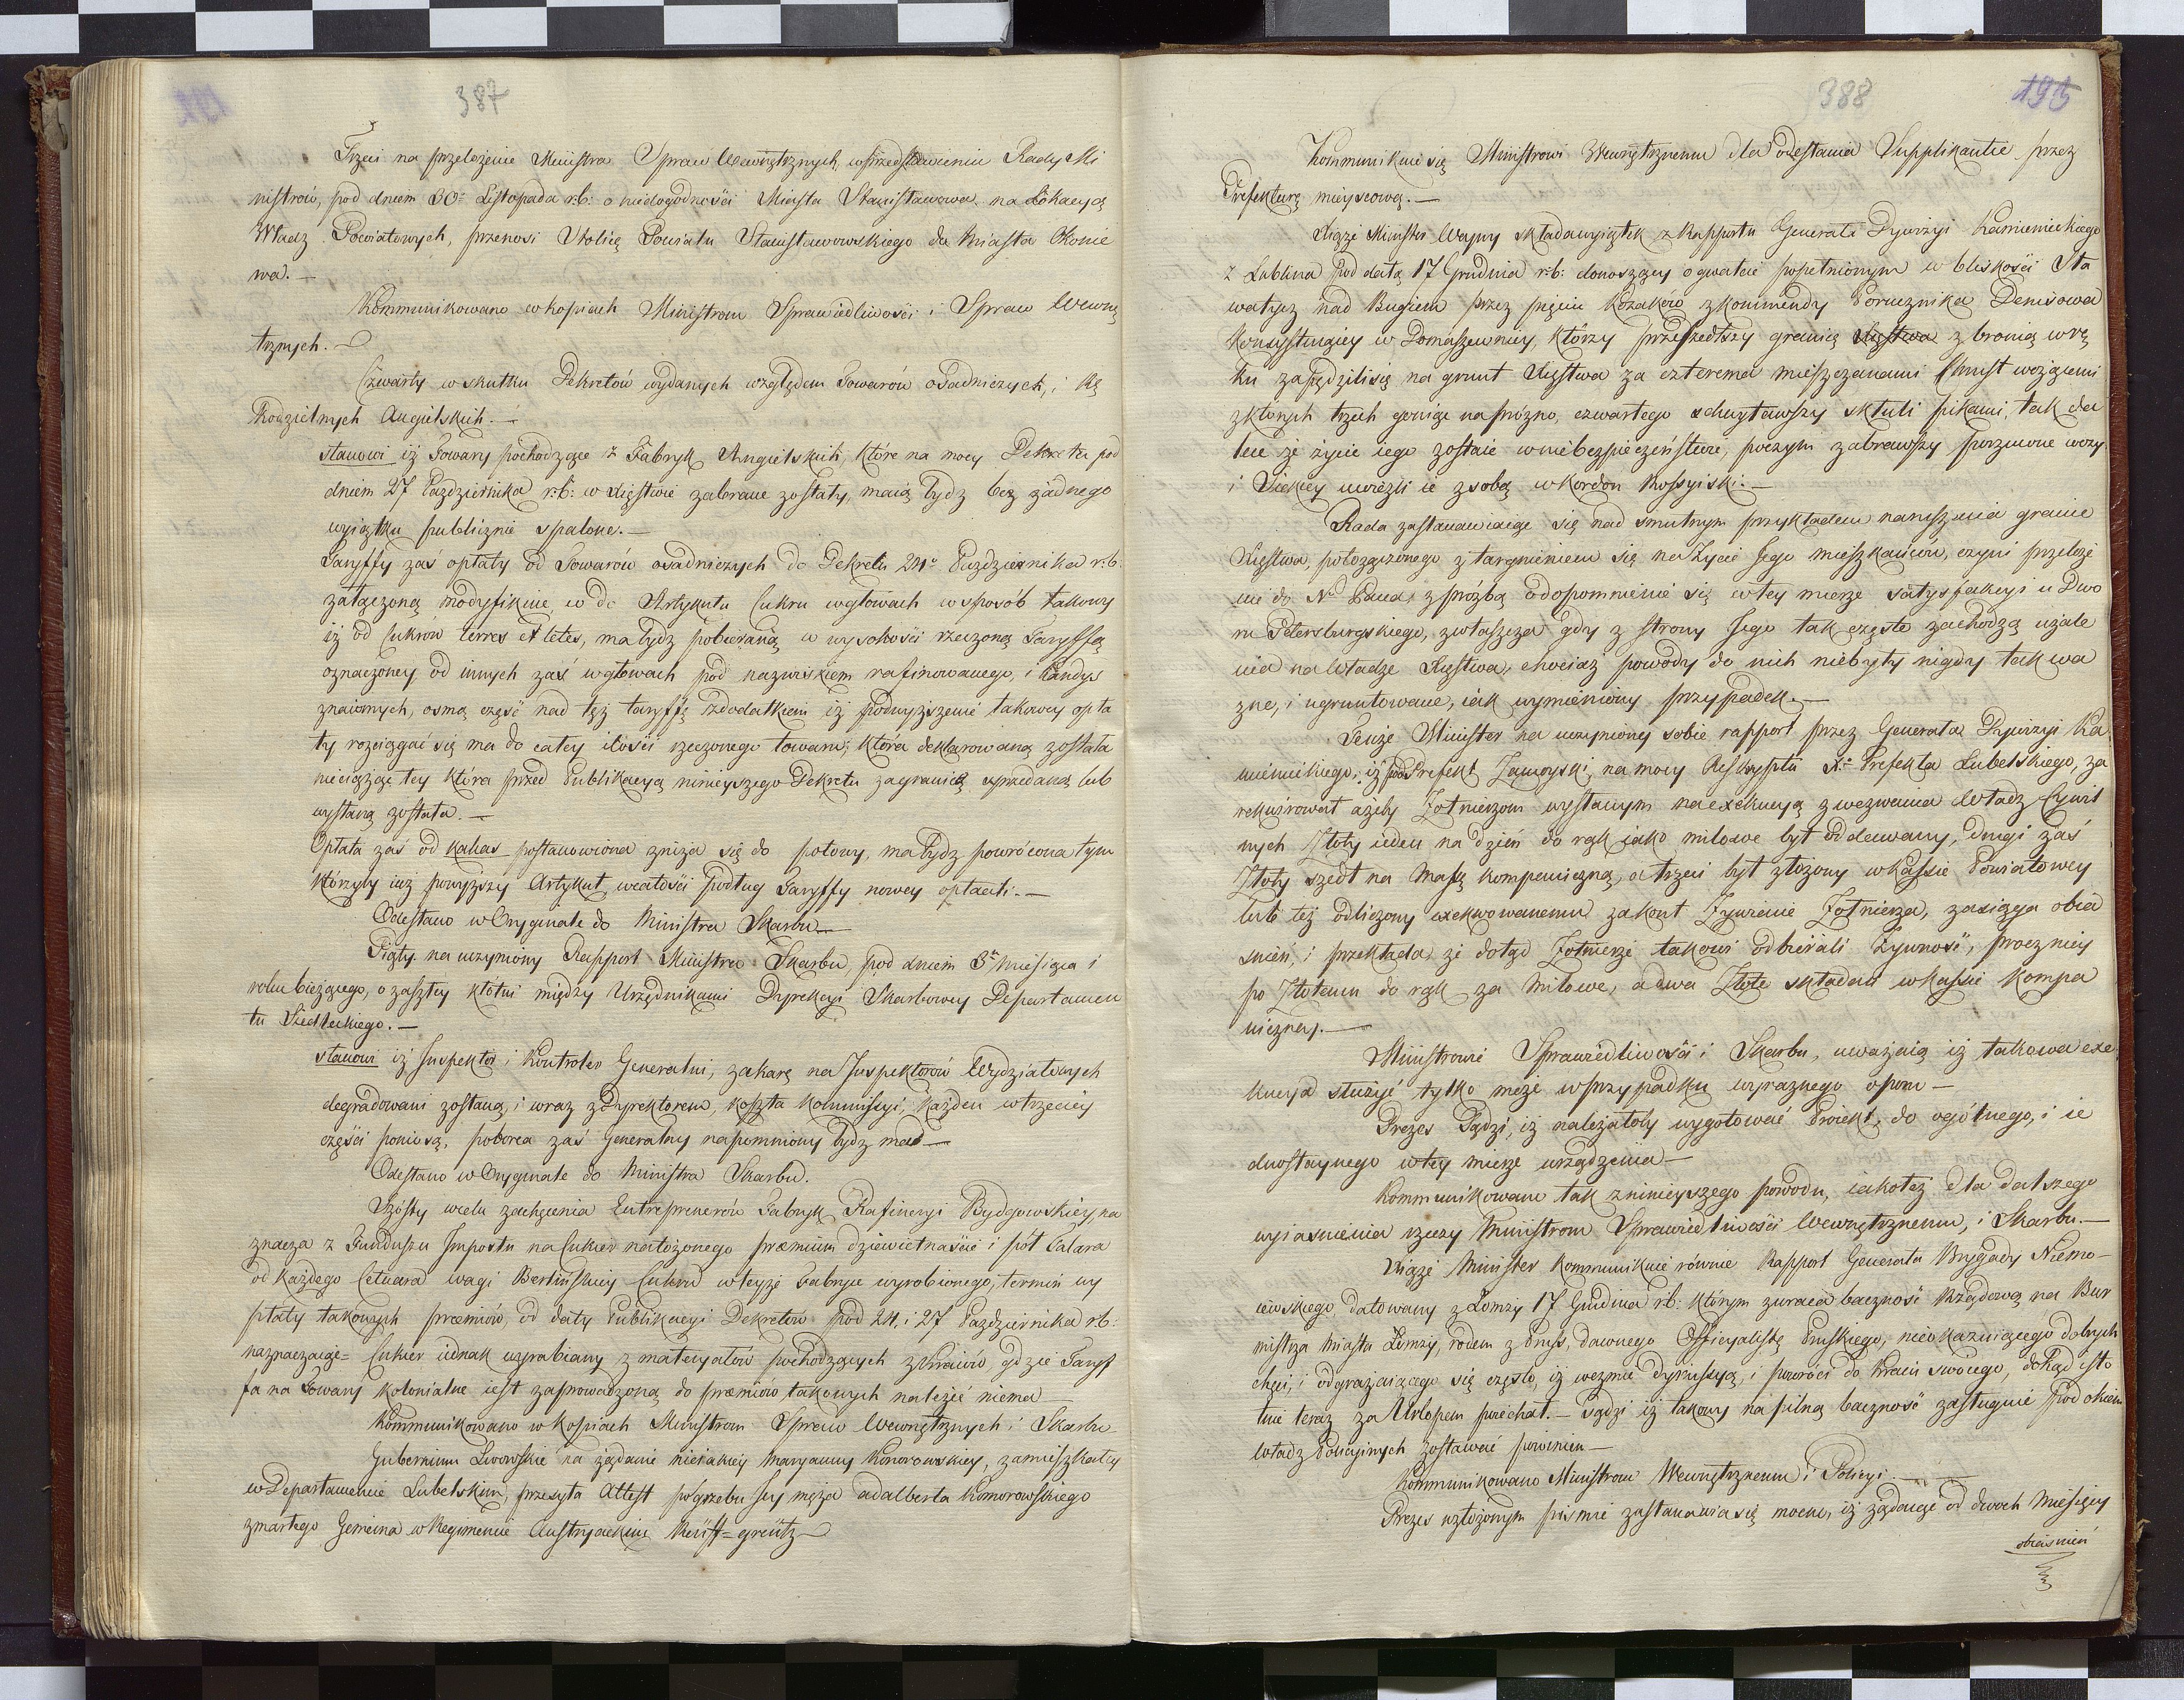 387
Trzeci na przełożenie Ministra Spraw Wewnętrznych, w przedstawieniu Rady Mi
nistrów, pod dniem 30º Listopada r:b: o niedogodności Miasta Stanisławowa na Lokacyą
Władz Powiatowych, przenosi Stolicę Powiatu Stanisławowskiego do Miasta Okunie
wa.—
Kommunikowano w kopiach Ministrom Sprawiedliwości i Spraw Wewnę
trznych.—
Czwarty w skutku Dekretów wydanych względem Towarów osadniczych, i Rę
kodzielnych Angielskich.—
stanowi iż Towary pochodzące z Fabryk Angielskich, które na mocy Dekretu pod
dniem 27 Pazdziernika r:b: w Xięstwie zabrane zostały, maią bydz bez żadnego
wyiątku publicznie spalone.—
Taryffy zaś opłaty od Towarów osadniczych do Dekretu 24º Pazdziernika r:b:
załączoną modyfikuie, co do Artykułu Cukru w głowach w sposób takowy
iż od Cukrów terres et letes, ma bydz pobieraną w wysokości rzeczoną Taryffą
oznaczoney od innych zaś w głowach pod nazwiskiem rafinowanego, i Kandys
znaiomych, osmą część nad tęż taryffę z dodatkiem iż podwyższenie takowey opła
ty rozciągać się ma do całey ilości rzeczonego towaru; która deklarowaną została
nieciążąc tey która przed Publikacyą ninieyszego Dekretu zagranicę sprzedaną lub
wysłaną została.—
Opłata zaś od kakao postanowiona zniża się do połowy, ma bydz powrócona tym
którzyby iuż powyższy Artykuł w całości podług Taryffy nowey opłacili.—
Odesłano w Oryginale do Ministra Skarbu—
Piąty na uczyniony Rapport Ministra Skarbu, pod dniem 3º Miesiąca i
roku bieżącego, o zaszłey kłótni między Urzędnikami Dyrekcyi Skarbowey Departamen
tu Siedleckiego.—
stanowi iż Inspektor i Kontroler Generalni, za karę na Inspektorów Wydziałowych
degradowani zostaną, i wraz z Dyrektorem, koszta kommissyi, każden w trzeciey
części poniosą, poborca zaś Generalny napomniony bydz ma—
Odesłano w Oryginale do Ministra Skarbu.
Szósty w celu zachęcenia Entreprenerów Fabryk Rafineryi Bydgowskiey, na
znacza z Funduszu Impostu na Cukier nałożonego præmium dziewietnaście i pół Talara
od każdego Cetnara wagi Berlińskiey Cukru w teyże Fabryce wyrobionego; termin wy
płaty takowych præmiów, od daty Publikacyi Dekretów pod 24, i 27 Pazdziernika r:b:
naznaczaiąc= Cukier iednak wyrabiany z materyałów pochodzących z Kraiów, gdzie Taryf
fa na Towary kolonialne iest zaprowadzoną do præmiów takowych należeć niema—
Kommunikowano w kopiach Ministrom Spraw Wewnętrznych i Skarbu—
Gubernium Lwowskie na żądanie nieiakiey Maryanny Komorowskiey, zamieszkałey
w Departamencie Lubelskim, przesyła Attest pogrzebu Jey męża adalberta Komorowskiego
zmarłego Gemeina w Regimencie Austryackim
388
193
Kommunikuie się Ministrowi Wewnętrznemu dla odesłania Supplikantce przez
Prefekturę mieyscową.—
Xiąże Minister Woyny składa wyiątek z Rapportu Generała Dywizyi Kamienieckiego
z Lublina pod datą 17 Grudnia r:b: donoszący o gwałcie popełnionym w bliskości Sła
watycz nad Bugiem przez pięciu Kozaków z kommendy Porucznika Denisowa
Konsystuiącey w Domaszewniey, którzy przeszedłszy granicę Xięstwa z bronią w rę
ku zapędzili się na grunt Xięstwa za czterema mieszczanami Chrust wożącemi
z których trzech goniąc na próżno, czwartego schwytawszy skłuli pikami, tak da
lece że życie iego zostaie w niebezpieczeństwie, poczym zabrawszy porzucone wozy
i Siekiery uwieźli ie z sobą w kordon Rossyiski.—
Rada zastanawiaiąc się nad smutnym przykładem naruszenia granic
Xięstwa, połozączonego z targnieniem się na Zycie Jego mieszkańców, czyni przełoże
nie do Nº Pana, z proźbą o dopomnienie się w tey mierze satysfakcyi u Dwo
ru Petersburgskiego, zwłaszcza gdy z strony Jego tak częste zachodzą użale
nia na Władze Xięstwa, chociaz powody do nich niebyły nigdy tak wa
żne, i ugruntowane, iak wymieniony przypadek.—
Tenże Minister na uczyniony sobie rapport przez Generała Dywizyi Ka
mienieckiego, iż podPrefekt Zamoyski, na mocy Reskryptu Xº Prefekta Lubelskiego, za
rekwirował ażeby Zołnierzom wysłanym na exekucyą z wezwania Władz Cywil
nych Złoty ieden na dzień do rąk iako milowe był oddawany, drugi zaś
Złoty szedł na Massę kompaniczną, a trzeci był złożony w kassie Powiatowey
lub też odliczony exekwowanemu za kont Zywienie Zołnierza, zasięga obia
śnień, i przekłada że dotąd Zołnierze takowi odbierali Zywność, procz niey
po Złotemu do rąk za Milowe, a dwa Złote składali w kassie kompa
niczney.—
Ministrowie Sprawiedliwości i Skarbu, uważaią iż takowa exe
kucya służyć tylko może w przypadku wyraznego oporu—
Prezes Sądzi, iż należałoby wygotować Proiekt, do ogólnego, i ie
dnostaynego w tey mierze urządzenia—
Kommunikowano tak z ninieyszego powodu, iakoteż dla dalszego
wyiaśnienia rzeczy Ministrom Sprawiedliwości Wewnętrznemu, i Skarbu.—
Xiąże Minister kommunikuie równie Rapport Generała Brygady Niemo-
iewskiego, datowany z Łomży 17 Grudnia r:b: którym zwraca baczność Rządową na Bur
mistrza Miasta Łomży, rodem z Prus, dawnego Officyalistę Pruskiego, nieokazuiącego dobrych
chęci, i odgrażaiącego się często, iż weźmie dymissyą, i powróci do kraiu swoiego, dokąd isto
tnie teraz za Urlopem poiechał.— Sądzi iż takowy na pilną baczność zasługuie pod okiem
Władz Policyinych zostawać powinien—
Kommunikowano Ministrom Wewnętrznemu i Policyi.—
Prezes w złożonym piśmie zastanawia się mocno, iż żądaiąc od dwoch Miesięcy
obiaśnień